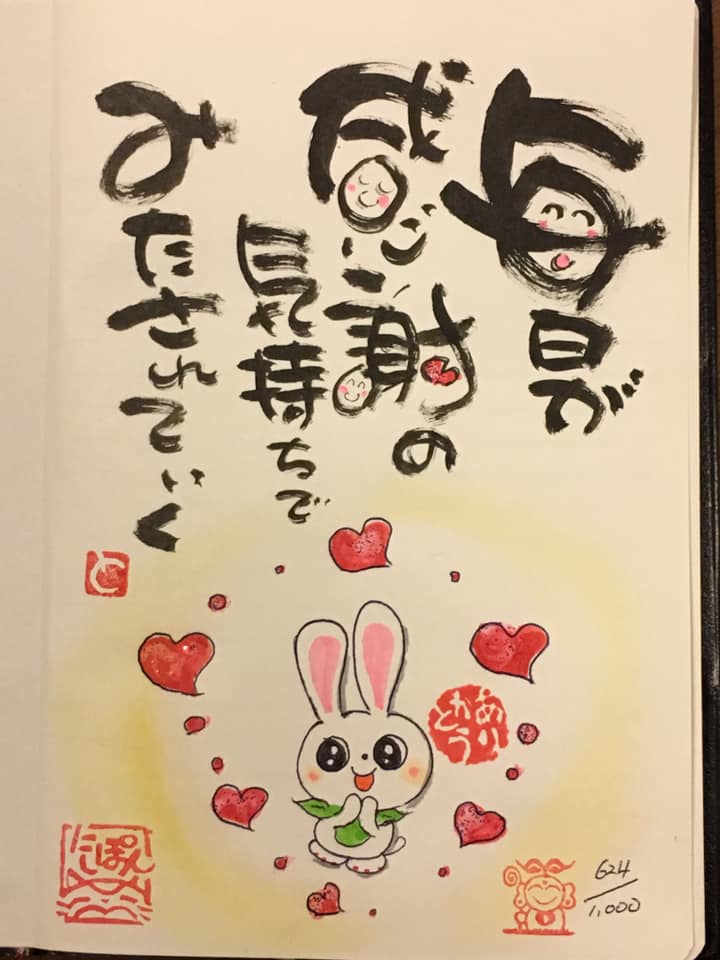 毎日が
感謝の
気持ちで
みたされていく
と
ありがとう
624/1,000